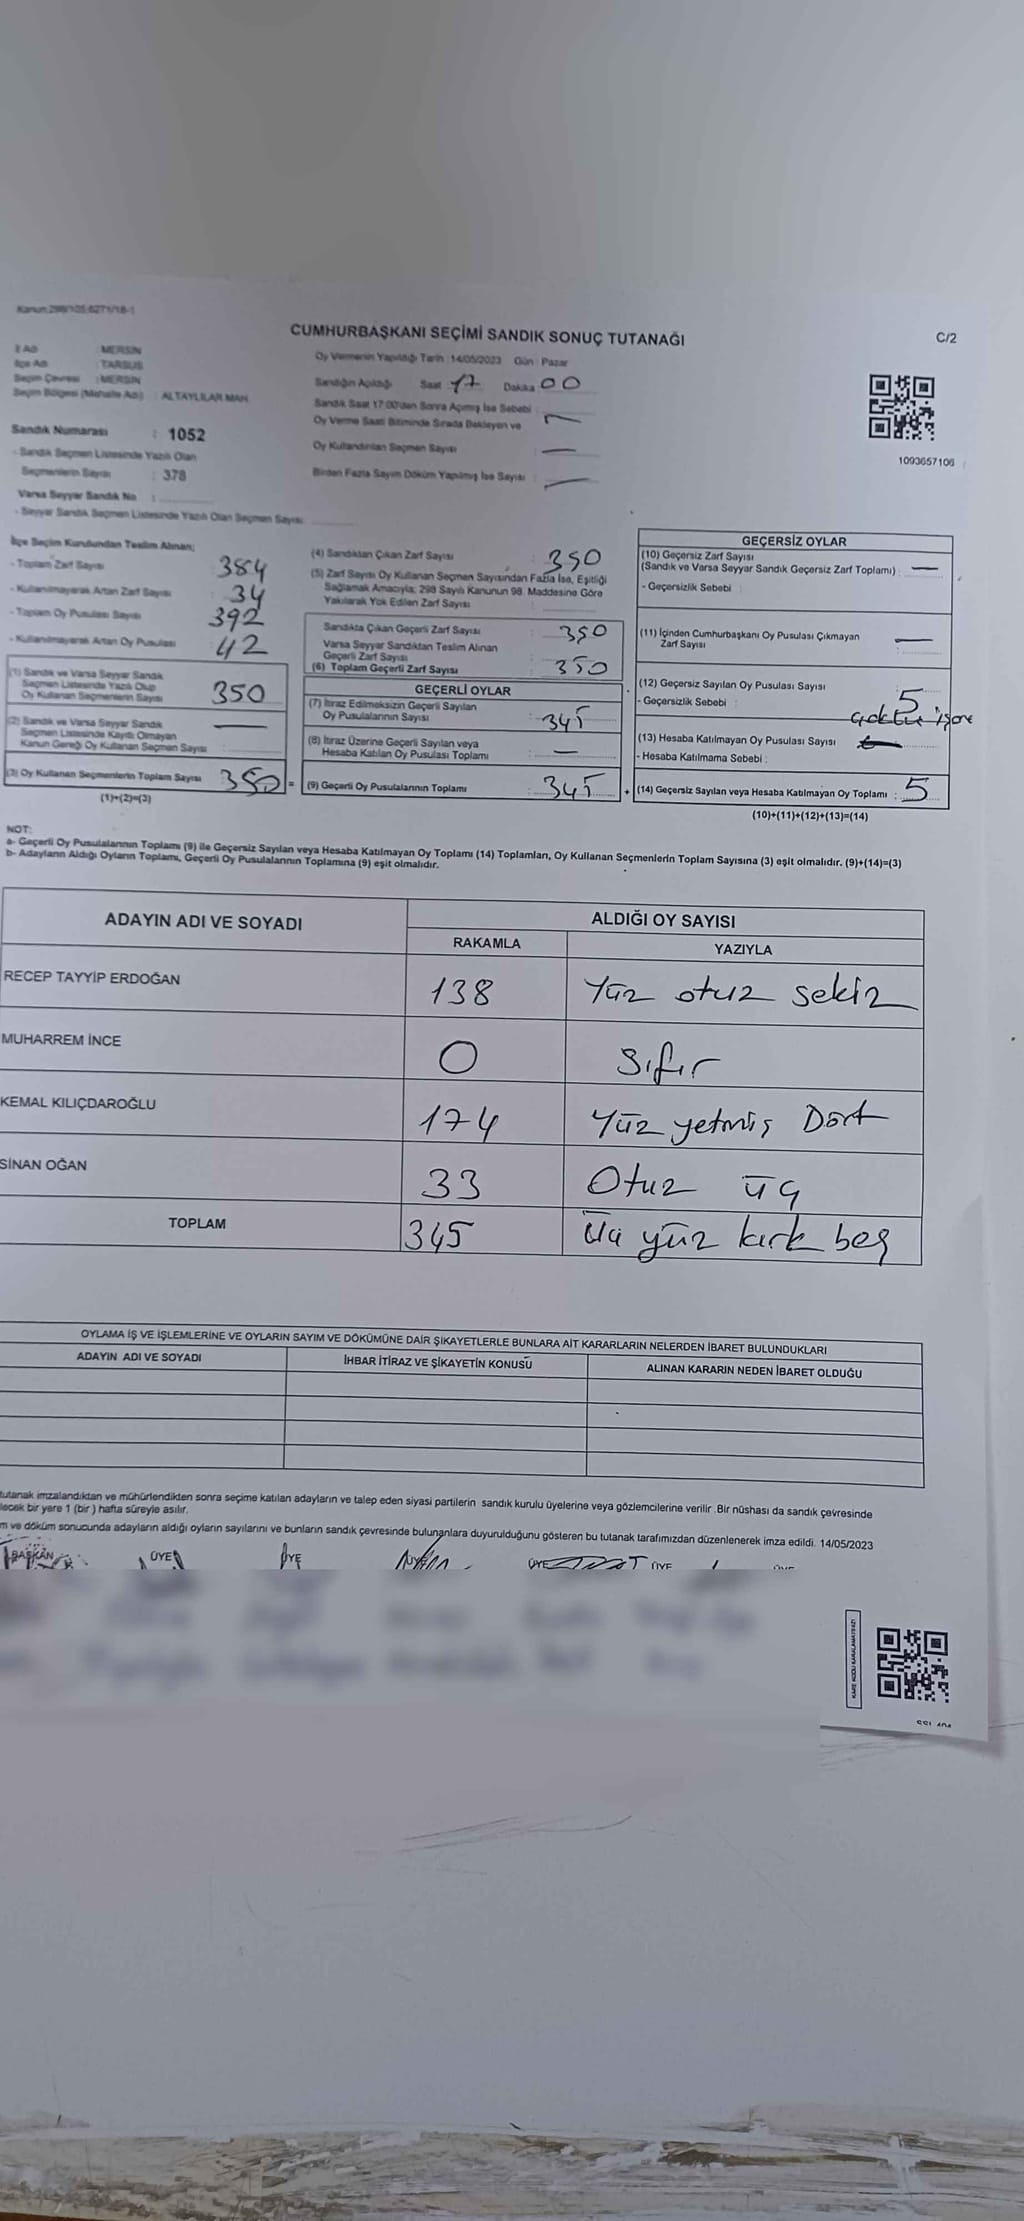 Kanun:298/105;6271/18-1
CUMHURBAŞKANI SEÇİMİ SANDIK SONUÇ TUTANAĞI
C/2
İl Adı : MERSİN
İlçe Adı : TARSUS
Seçim Çevresi : MERSİN
Seçim Bölgesi (Mahalle Adı) : ALTAYLILAR MAH.
Oy Vermenin Yapıldığı Tarih : 14/05/2023 Gün : Pazar
Sandığın Açıldığı Saat 17 Dakika 00
Sandık Saat 17:00'dan Sonra Açılmış İse Sebebi :
Oy Verme Saati Bitiminde Sırada Bekleyen ve
Oy Kullandırılan Seçmen Sayısı : —
Birden Fazla Sayım Döküm Yapılmış İse Sayısı : —
1093657106
Sandık Numarası : 1052
- Sandık Seçmen Listesinde Yazılı Olan
Seçmenlerin Sayısı : 378
Varsa Seyyar Sandık No :
- Seyyar Sandık Seçmen Listesinde Yazılı Olan Seçmen Sayısı:
İlçe Seçim Kurulundan Teslim Alınan;
- Toplam Zarf Sayısı : 384
- Kullanılmayarak Artan Zarf Sayısı : 34
- Toplam Oy Pusulası Sayısı : 392
- Kullanılmayarak Artan Oy Pusulası : 42
(1) Sandık ve Varsa Seyyar Sandık
Seçmen Listesinde Yazılı Olup
Oy Kullanan Seçmenlerin Sayısı 350
(2) Sandık ve Varsa Seyyar Sandık
Seçmen Listesinde Kayıtlı Olmayan
Kanun Gereği Oy Kullanan Seçmen Sayısı : —
(3) Oy Kullanan Seçmenlerin Toplam Sayısı 350 =
(1)+(2)=(3)
(4) Sandıktan Çıkan Zarf Sayısı : 350
(5) Zarf Sayısı Oy Kullanan Seçmen Sayısından Fazla İse, Eşitliği
Sağlamak Amacıyla; 298 Sayılı Kanunun 98. Maddesine Göre
Yakılarak Yok Edilen Zarf Sayısı :
Sandıkta Çıkan Geçerli Zarf Sayısı : 350
Varsa Seyyar Sandıktan Teslim Alınan
Geçerli Zarf Sayısı
(6) Toplam Geçerli Zarf Sayısı : 350
GEÇERLİ OYLAR
(7) İtiraz Edilmeksizin Geçerli Sayılan
Oy Pusulalarının Sayısı : 345
(8) İtiraz Üzerine Geçerli Sayılan veya
Hesaba Katılan Oy Pusulası Toplamı : —
(9) Geçerli Oy Pusulalarının Toplamı : 345 +
GEÇERSİZ OYLAR
(10) Geçersiz Zarf Sayısı
(Sandık ve Varsa Seyyar Sandık Geçersiz Zarf Toplamı) : —
- Geçersizlik Sebebi :
(11) İçinden Cumhurbaşkanı Oy Pusulası Çıkmayan
Zarf Sayısı : —
(12) Geçersiz Sayılan Oy Pusulası Sayısı : 5
- Geçersizlik Sebebi :
(13) Hesaba Katılmayan Oy Pusulası Sayısı
- Hesaba Katılmama Sebebi :
(14) Geçersiz Sayılan veya Hesaba Katılmayan Oy Toplamı : 5
(10)+(11)+(12)+(13)=(14)
NOT:
a- Geçerli Oy Pusulalarının Toplamı (9) ile Geçersiz Sayılan veya Hesaba Katılmayan Oy Toplamı (14) Toplamları, Oy Kullanan Seçmenlerin Toplam Sayısına (3) eşit olmalıdır. (9)+(14)=(3)
b- Adayların Aldığı Oyların Toplamı, Geçerli Oy Pusulalarının Toplamına (9) eşit olmalıdır.
ADAYIN ADI VE SOYADI
ALDIĞI OY SAYISI
RAKAMLA YAZIYLA
RECEP TAYYİP ERDOĞAN 138 Yüz otuz sekiz
MUHARREM İNCE 0 Sıfır
KEMAL KILIÇDAROĞLU 174 Yüz yetmiş Dört
SİNAN OĞAN 33 Otuz üç
TOPLAM 345 Üç yüz kırk beş
OYLAMA İŞ VE İŞLEMLERİNE VE OYLARIN SAYIM VE DÖKÜMÜNE DAİR ŞİKAYETLERLE BUNLARA AİT KARARLARIN NELERDEN İBARET BULUNDUKLARI
ADAYIN ADI VE SOYADI İHBAR İTİRAZ VE ŞİKAYETİN KONUSU ALINAN KARARIN NEDEN İBARET OLDUĞU
tutanak imzalandıktan ve mühürlendikten sonra seçime katılan adayların ve talep eden siyasi partilerin sandık kurulu üyelerine veya gözlemcilerine verilir. Bir nüshası da sandık çevresinde
lecek bir yere 1 (bir) hafta süreyle asılır.
m ve döküm sonucunda adayların aldığı oyların sayılarını ve bunların sandık çevresinde bulunanlara duyurulduğunu gösteren bu tutanak tarafımızdan düzenlenerek imza edildi. 14/05/2023
BAŞKAN ÜYE ÜYE ÜYE ÜYE
KARE KODU KARALAMAYINIZ!